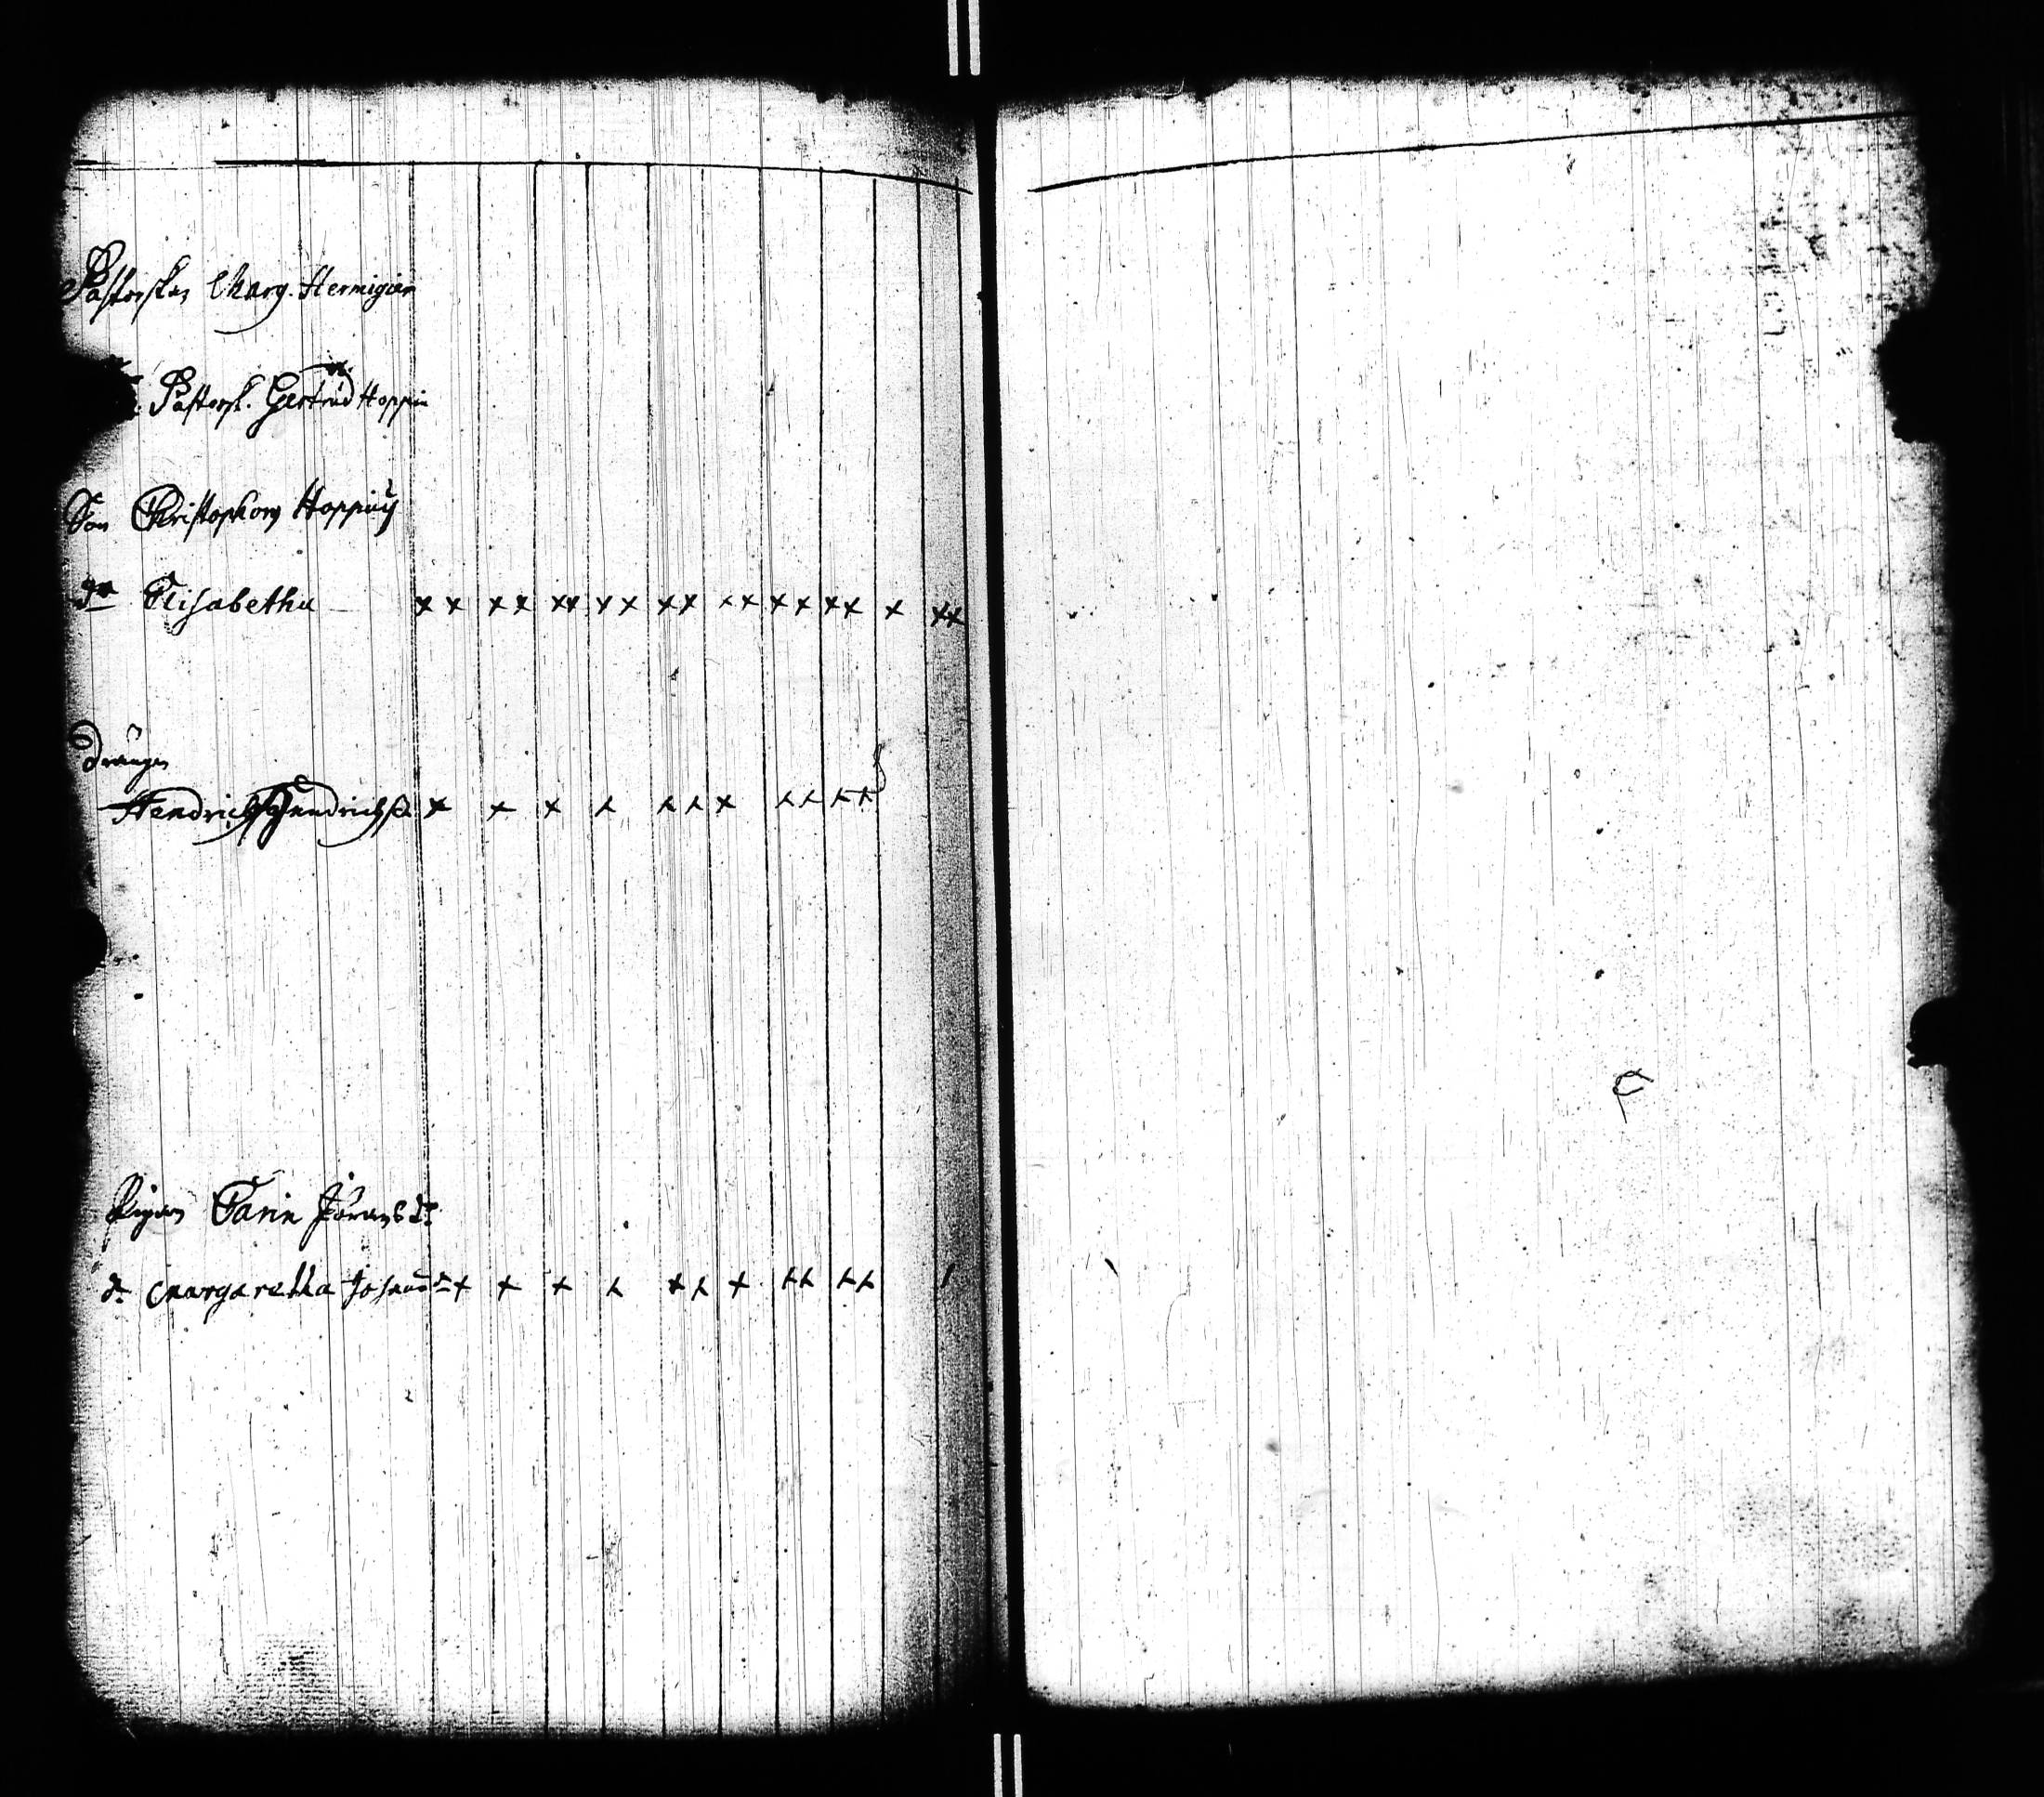 Pastorskan Marg. Hermigier
Pastorsk. Gertrud Hoppin
Son Christophorg Hoppiug
dr Elisabetha x x x x x x x x x x x x x x x x x x x
Drängen
Hendrich Hendrichss. x x x x x x x x x x x
Pigan Carin Jörans dr
d. Margaretha Johans dr x x x x x x x x x x x